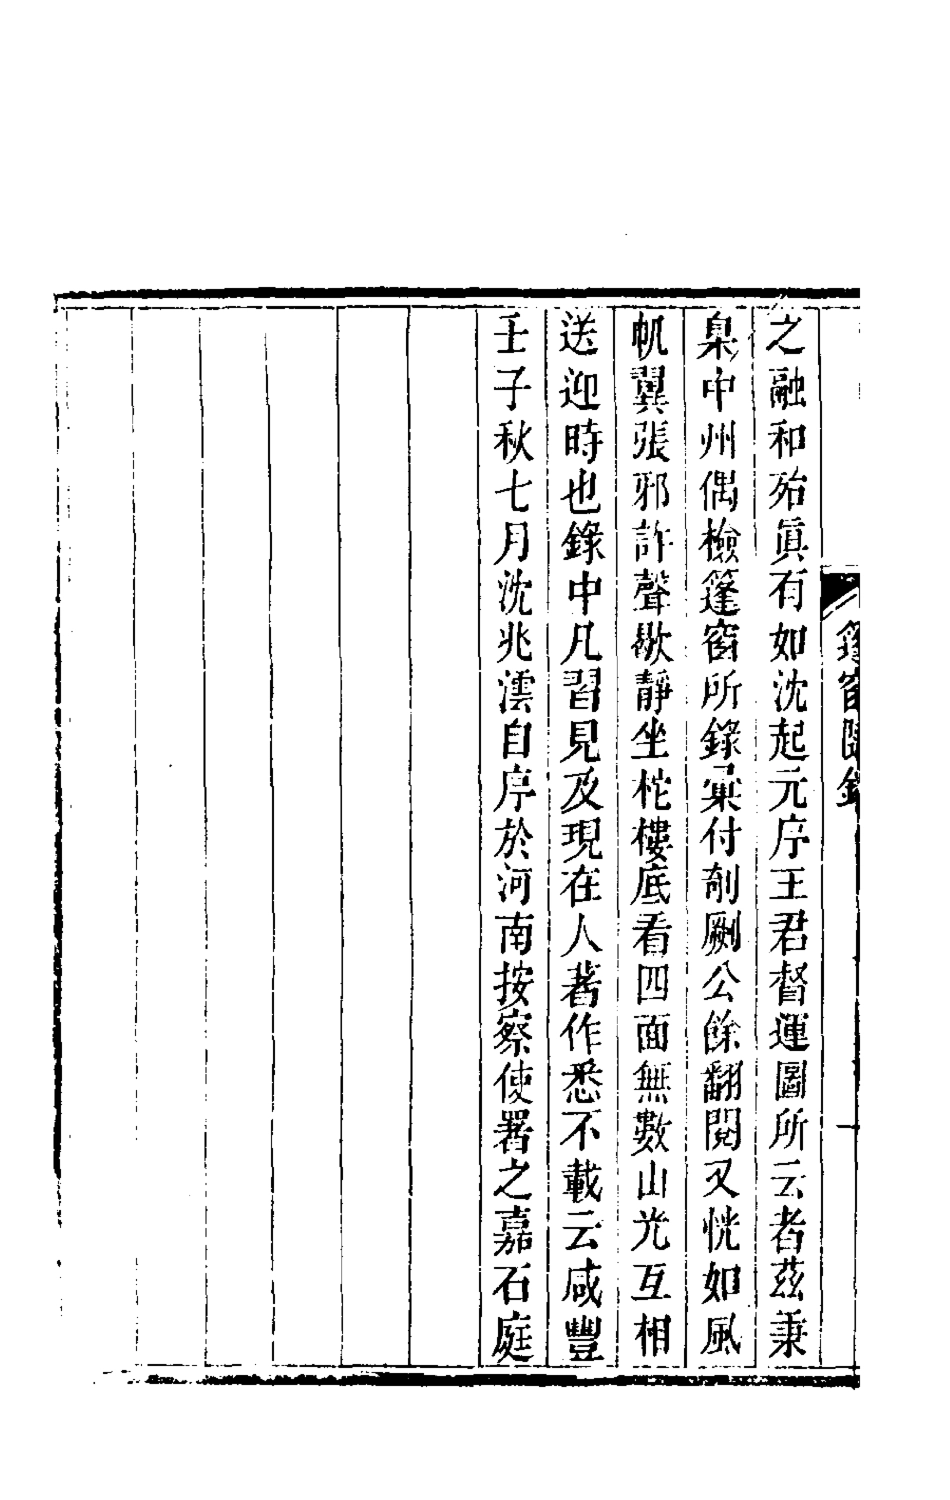 之融和殆眞有如沈起元序王君督運圖所云者茲秉
臬中州偶檢篷窗所錄彙付剞劂公餘翻閱又恍如風
帆翼張邪許聲歇靜坐柁樓底看四面無數山光互相
送迎時也錄中凡習見及現在人著作悉不載云咸豐
壬子秋七月沈兆澐自序於河南按察使署之嘉石庭
篷窗隨錄
一